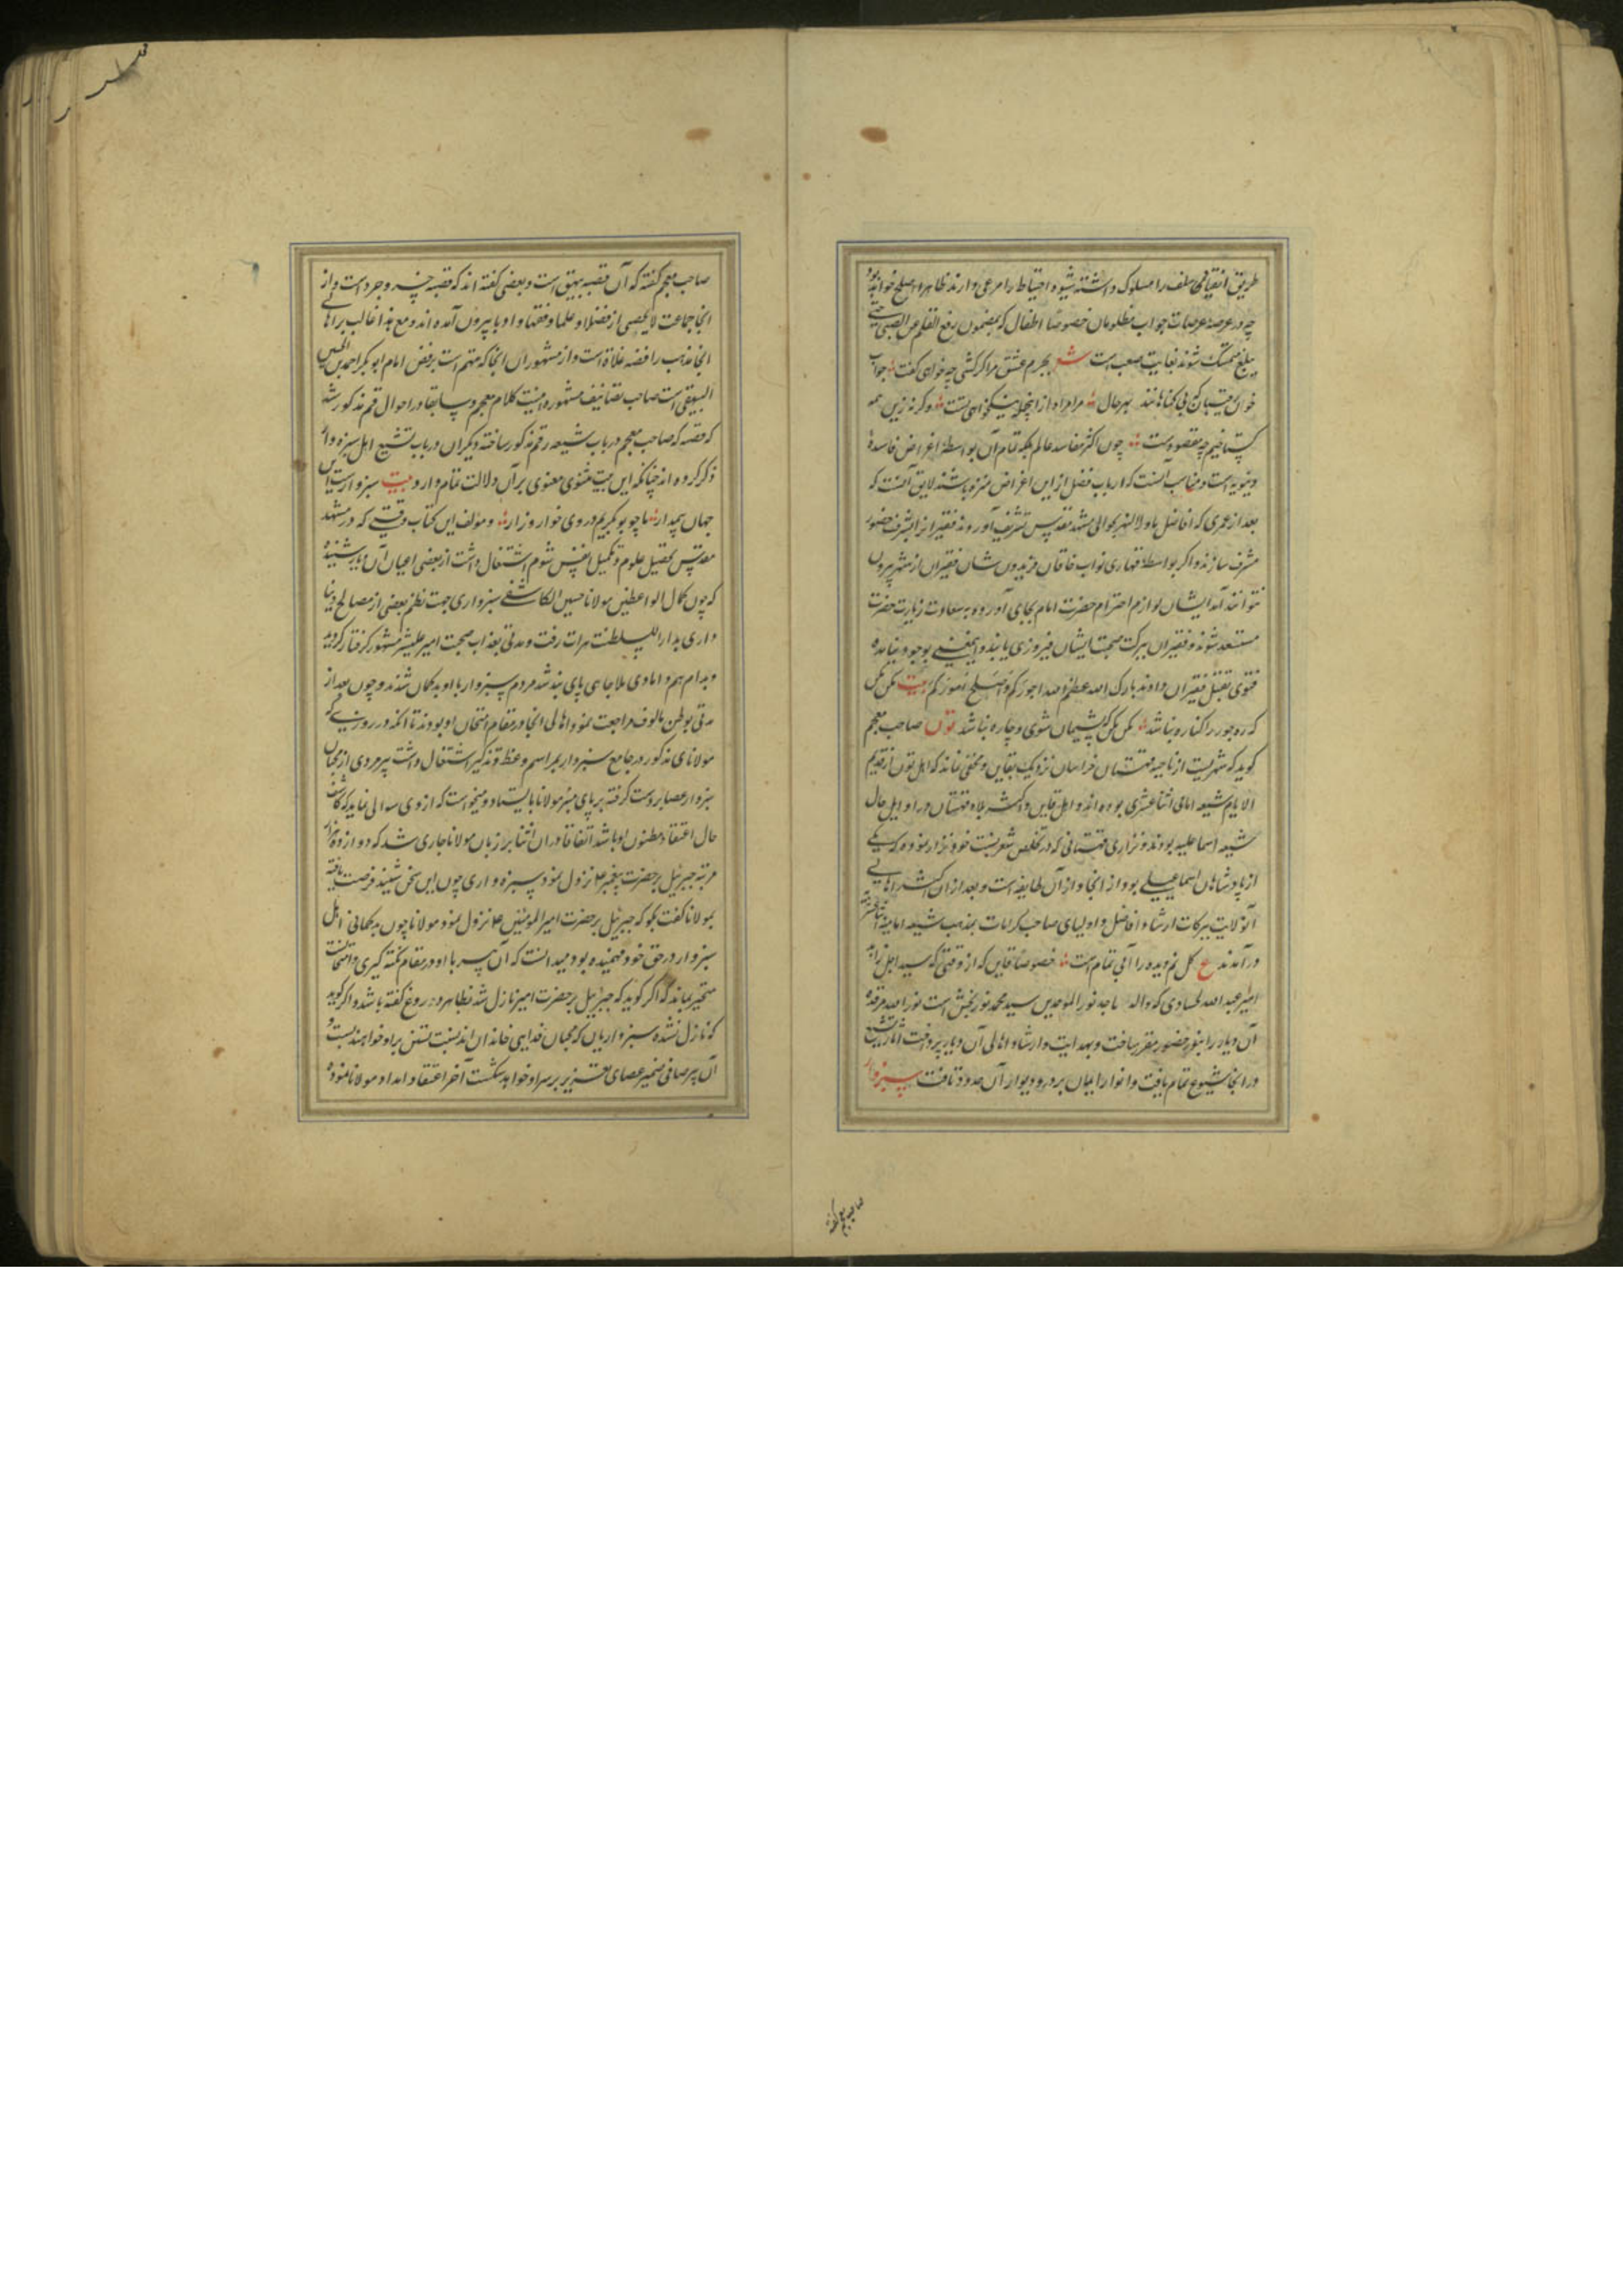 طریق اتقیای سلف را مسلوک داشته شیوه احتیاط را مرعی دارند ظاهرا اصلح خواهد بود
چه در عرصه عرصات جواب مظلومان خصوصا اطفال که بمضمون رفع القلم عن الصبی حتی
یبلغ متمسک شوند بغایت صعب است شعر بجرم عشق مرا گر کشی چه خواهی گفت جواب
خون که بی گناهانند بهر حال مرا مراد از اینجمله نیکخواهی تست وگرنه زین همه
گستاخیم چه مقصودست چون اکثر مفاسد عالم بلکه تمام آن بواسطه اغراض فاسده
دنیویه است و مناسب آنست که ارباب فضل از این اغراض منزه باشند لایق آنست که
بعد از عمری که افاضل ماوراالنهر بحوالی مشهد مقدس تشریف آورند فقیر از شرف حضور
مشرف سازند و اگر بواسطه قهاری نواب خاقان فریدون شان فقیران از شهر بیرون
نتوانند آمد ایشان لوازم احترام حضرت امام بجای آورده به سعادت زیارت حضرت
مستعد شوند و فقیران ببرکت صحبت ایشان فیروزی یابند و اینمعنی بوجود نیامده
فتوی بقتل فقیران دادند بارک الله عظم الله اجورکم و اصلح امورکم بیت مکن مکن
که ره جور را کناره نباشد مکن مکن که پشیمان شوی و چاره نباشد تون صاحب معجم
گوید که شهریست از ناحیه قهستان خراسان نزدیک بقاین و مخفی نماند که اهل تون از قدیم
الایام شیعه امامی اثنا عشری بوده اند و اهل قاین و اکثر بلاد قهستان در اوایل حال
شیعه اسماعلیه بودند و نزاری قهستانی که در تخلص شعر نسبت خود بنزار نموده که یکی
از پادشاهان اسماعیلی بود از انجا و از آن طایفه است و بعد از ان اکثر اهالی
آنولایت ببرکات ارشاد افاضل و اولیای صاحب کرامات بمذهب شیعه امامیه اثنا عشریه
درآمدند ع گل نم دیده را آبی تمام است خصوصا قاین که از وقتی که سید اهل زاید
امیر عبد الله لحساوی که والد ماجد نور الموحدین سید محمد نوربخش است نور الله مرقده
آن دیار را بنور حضور مقر ساخت و بهدایت و ارشاد اهالی آن دیار پرداخت آثار تشیع
در انجا شیوع تمام یافت و انوار ایمان بر در و دیوار آن حدود تافت سبزوار
صاحب معجم گفته
صاحب معجم گفته که آن قصبه بیهق است و بعضی گفته اند که قصبه خسروجرد است و از
انجا جماعت لایحصی از فضلا و علما و فقها و ادبا بیرون آمده اند و مع هذا غالب بر اهالی
انجا مذهب رافضه غلاة است و از مشهوران انجا که متهم است برفض امام ابو بکر احمد بن الحسین
البیهقی است صاحب تصانیف مشهوره اینست کلام معجم و سابقا در احوال قم مذکور شد
که قصه که صاحب معجم در باب شیعه قم مذکور ساخته دیگران در باب تشیع اهل سبزوار
ذکر کرده اند چنانکه این بیت مثنوی معنوی بر آن دلالت تمام دارد بیت سبزوارست این
جهان بیمدار ما چو بوبکریم در وی خوار و زار و مؤلف این کتاب وقتی که در مشهد
مقدس بتحصیل علوم و تکمیل نفس شوم اشتغال داشت از بعضی اعیان آن دیار شنیده
که چون کمال الواعظین مولانا حسین الکاشفی سبزواری جهت نظم بعضی از مصالح دنیا
داری بدار السلطنت هرات رفت و مدتی بعذاب صحبت امیر علیشیر مشهور گرفتار گردید
و بدام هم دامادی ملا جامی پای بند شد مردم سبزوار با او بدگمان شدند و چون بعد از
مدتی بوطن مالوف مراجعت نمود اهالی انجا در مقام امتحان او بودند تا آنکه در روزی که
مولانای مذکور در جامع سبزوار بمراسم وعظ و تذکیر اشتغال داشت پیرمردی از محبان
سبزوار عصا بردست گرفته بر پای منبر مولانا بایستاد و میخواست که از وی سوالی نماید که کاشف
حال اعتقاد مظنون او باشد اتفاقا در ان اثنا بر زبان مولانا جاری شد که دوازده هزار
مرتبه جبرئیل بر حضرت پیغمبر علا نزول نمود سبزواری چون این سخن شنید فرصت یافته
بمولانا گفت بگو که جبرئیل بر حضرت امیر المومنین علا نزول نمود مولانا چون بدگمانی اهل
سبزوار در حق خود فهمیده بود میدانست که آن پیر با او در مقام نکته گیری و امتحانست
متحیر بماند که اگر گوید که جبرئیل بر حضرت امیر نازل شد بظاهر دروغ گفته باشد و اگر گوید
که نازل نشده سبزواریان که محبان فدایی خاندان اند نسبت تسنن بر او خواهند بست و
آن پیر صافی ضمیر عصای تعزیر بر سر او خواهد شکست آخر اعتقاد امداد مولانا نموده